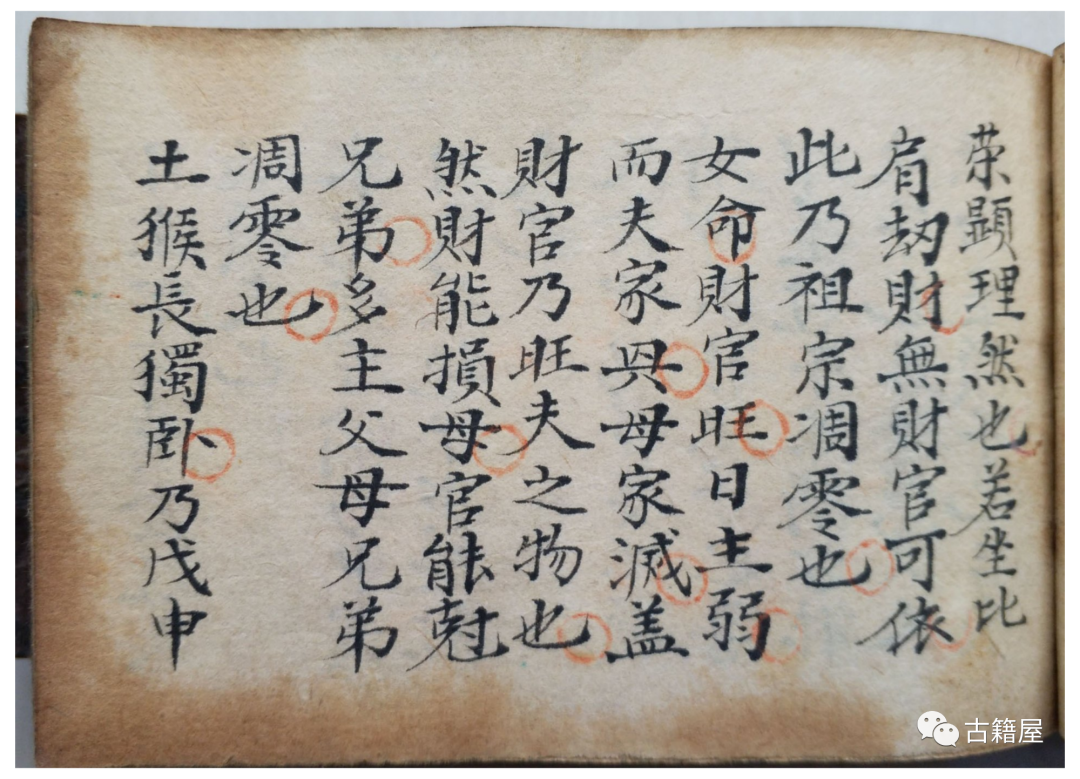 荣顯理然也若坐比
肩刼財無財官可依
此乃祖宗凋零也
女命財官旺日主弱
而夫家兴母家滅盖
財官乃旺夫之物也
然財能損母官能尅
兄弟多主父母兄弟
凋零也
土猴長獨卧乃戊申
古籍屋